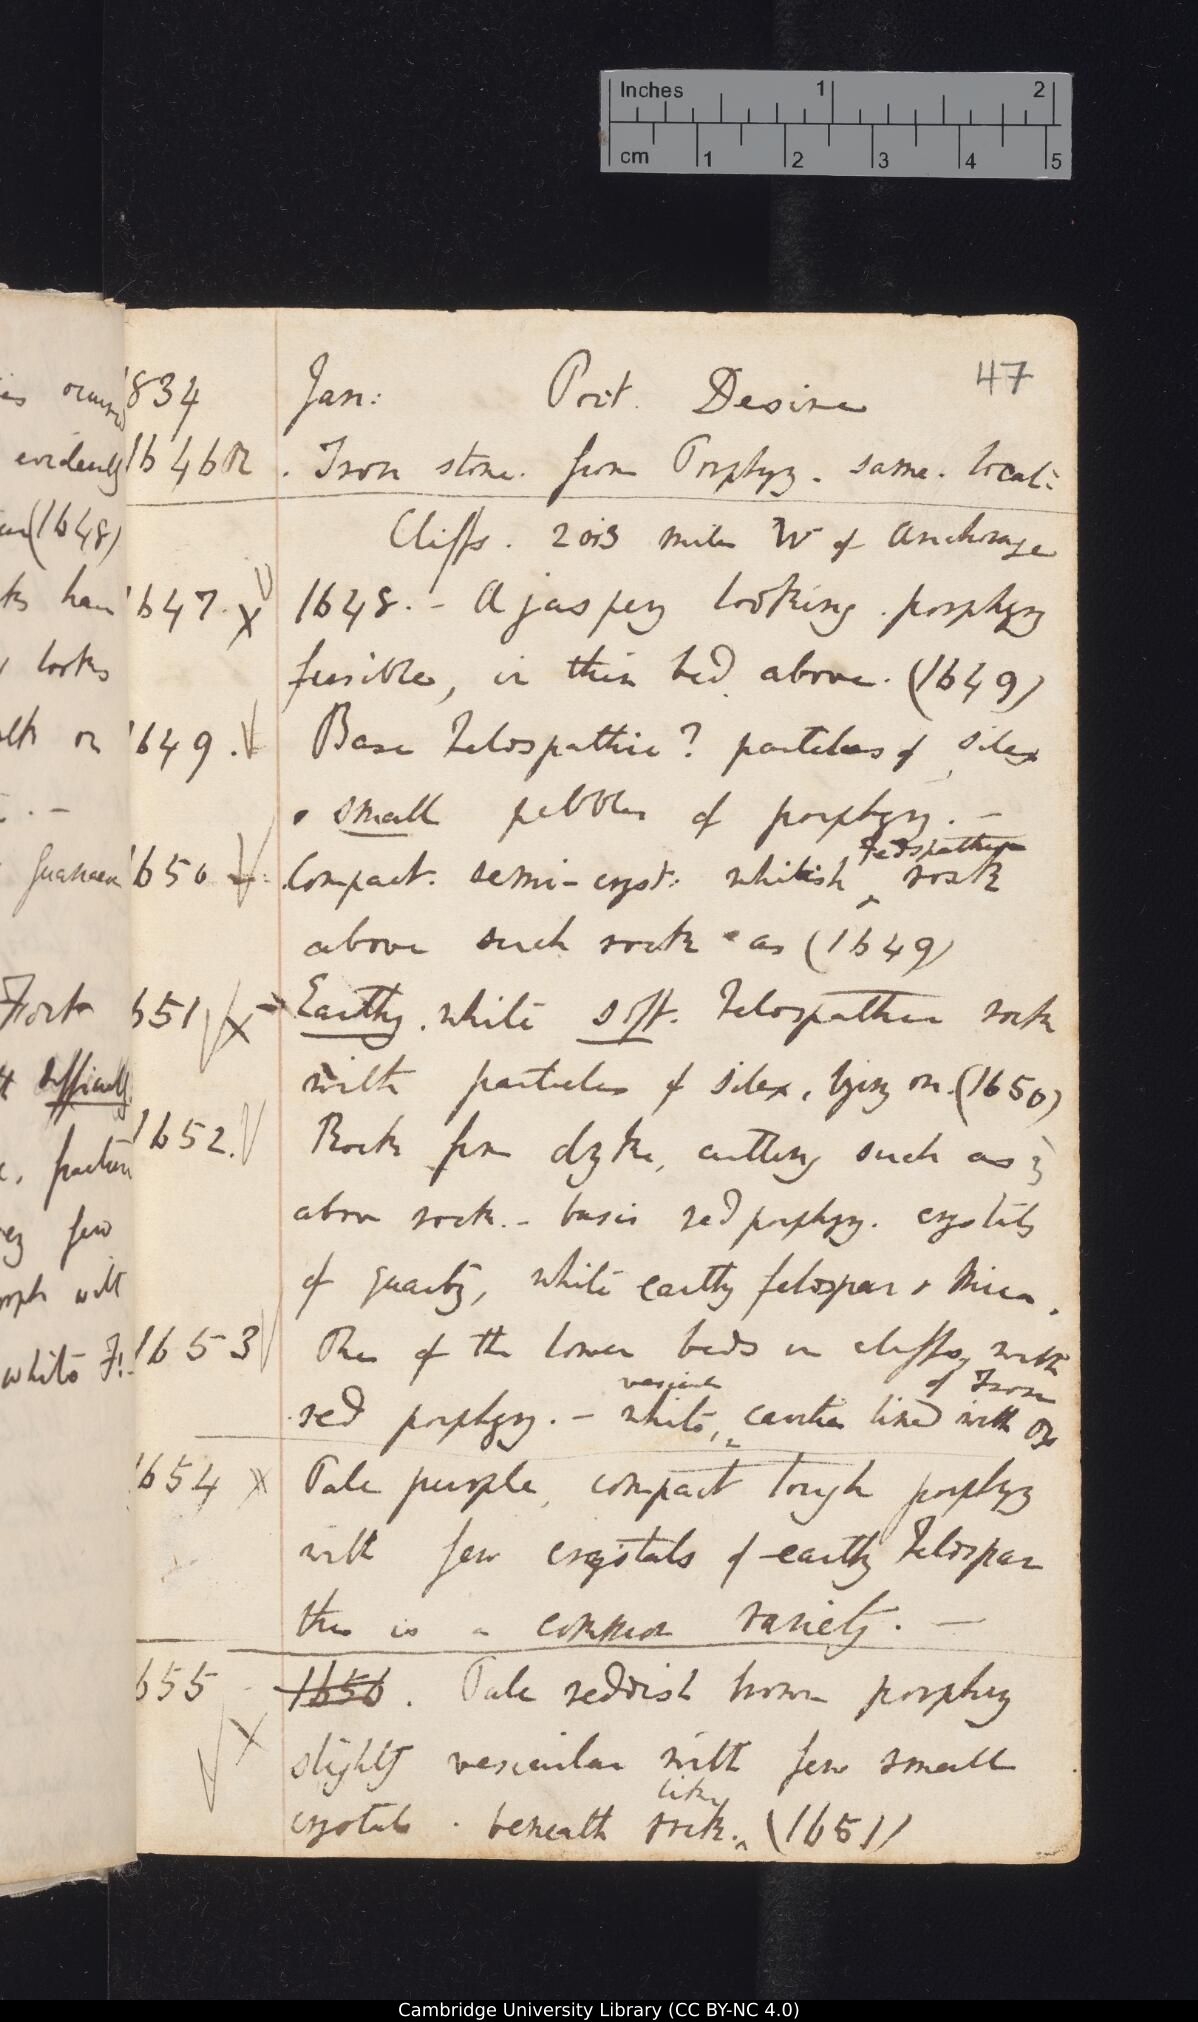 Inches 1 2
cm 1 2 3 4 5
47
1834 Jan: Port Desire
1646 . Iron stone. from Porphyry. same. locat:
Cliffs. 2 or 3 miles W of anchorage
1647. X 1648. – A jaspery looking porphyry
fusible, in thin bed above. (1649)
1649. Base Felospathic? particles of silex
& small pebbles of porphyry. –
1650 Compact. semi-cryst: whitish Felspathic rock
above such rock as (1649)
1651 X Earthy. white soft. Felospathic rock
with particles of silex, lying on (1650)
1652. Rock from dyke, cutting such as
above rock. – basis red porphyry. crystals
of quartz, white earthy felospar & Mica.
1653 One of the lower beds in cliffs, with
red porphyry. – white, vesicular cavities lined with Ox of Iron
1654 X Pale purple, compact tough porphyry
with few crystals of earthy Felospar
this is a common variety. –
1655 X 1656. Pale reddish brown porphyry
slightly vesicular with few small
crystals. beneath rock. like (1651)
is
evidently
(1648)
ks have
looks
on
Guanaco
Fort
difficulty
fracture
few
with
white F!
Cambridge University Library (CC BY-NC 4.0)